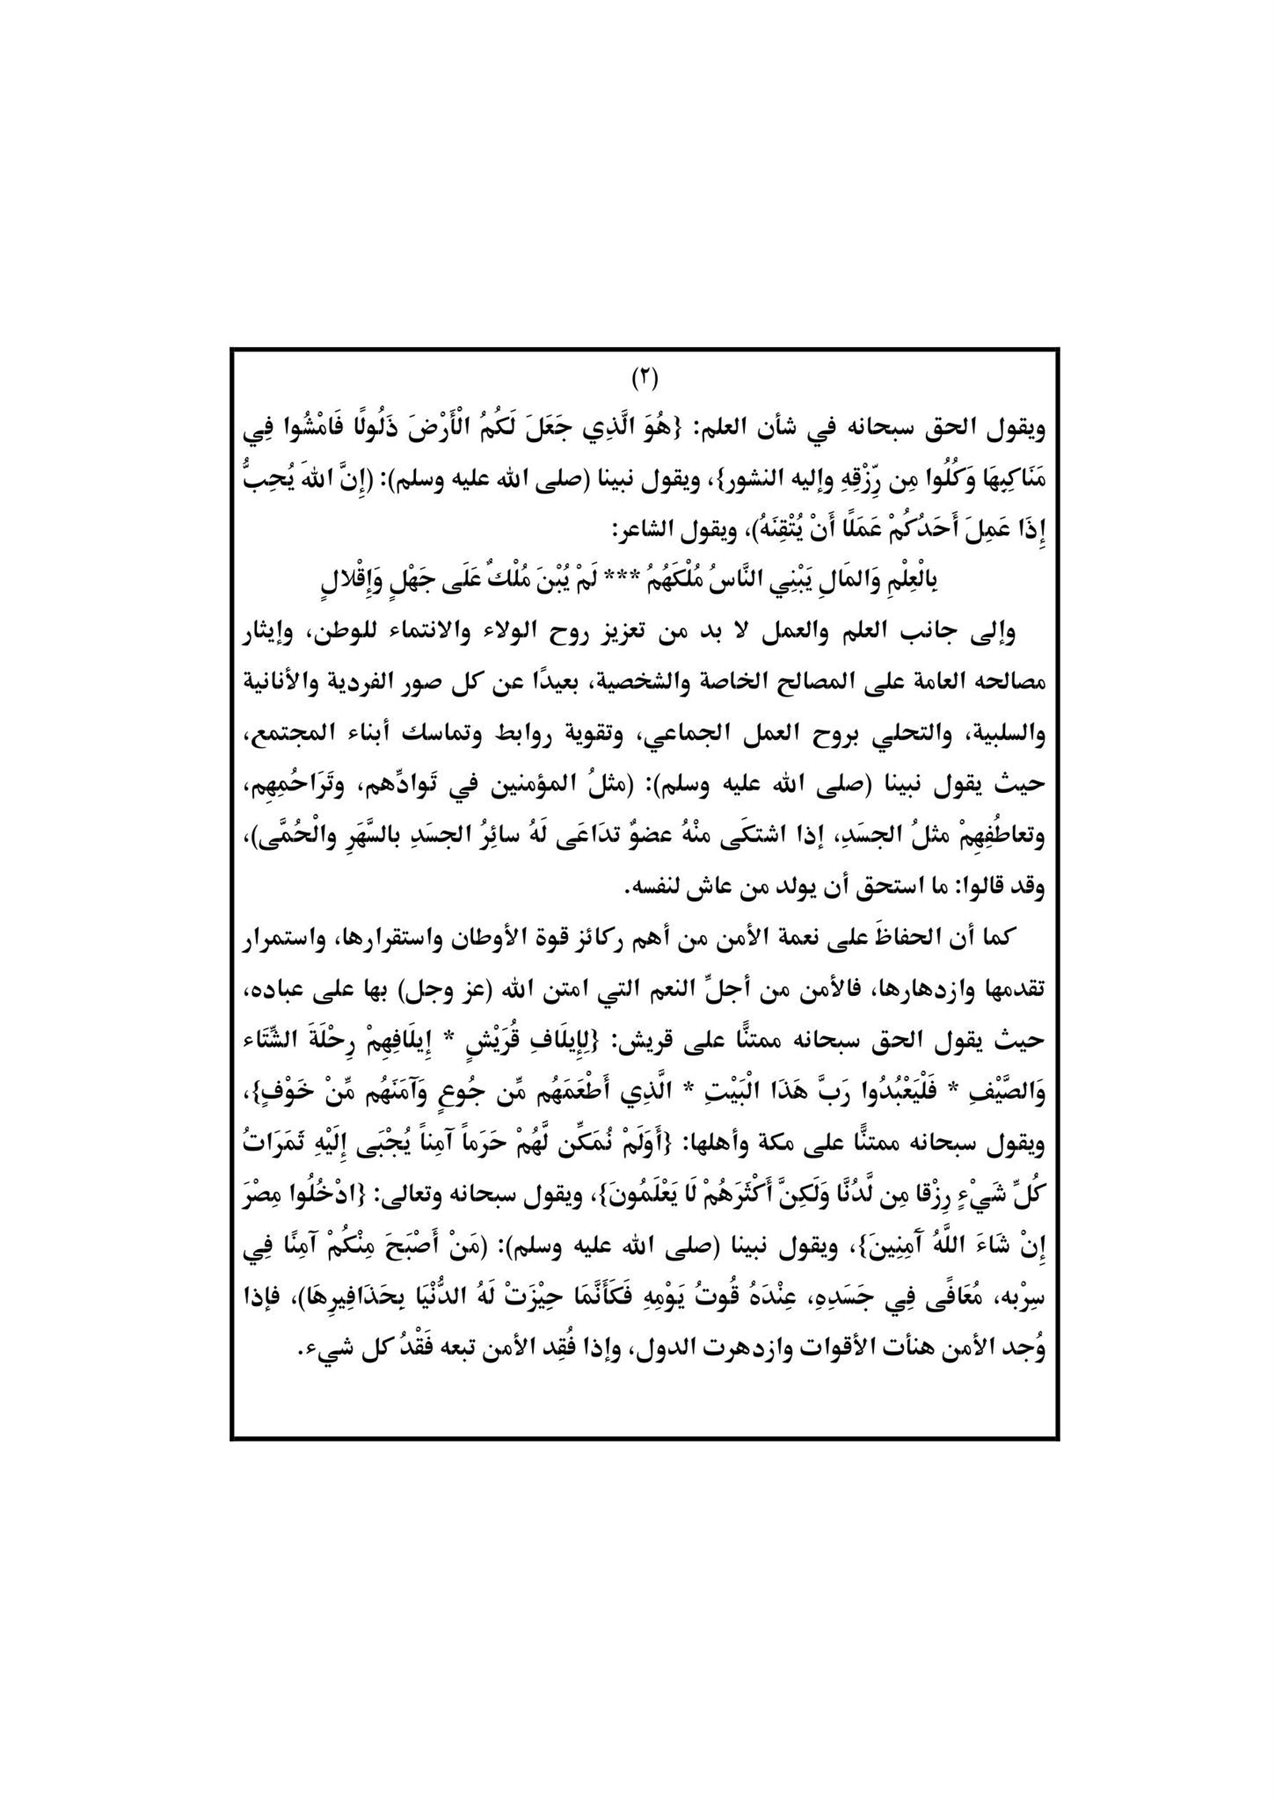 (٢)
ويقول الحق سبحانه في شأن العلم: {هُوَ الَّذِي جَعَلَ لَكُمُ الْأَرْضَ ذَلُولًا فَامْشُوا فِي
مَنَاكِبِهَا وَكُلُوا مِن رِّزْقِهِ وإليه النشور}، ويقول نبينا (صلى الله عليه وسلم): (إِنَّ اللهَ يُحِبُّ
إِذَا عَمِلَ أَحَدُكُمْ عَمَلًا أَنْ يُتْقِنَهُ)، ويقول الشاعر:
بِالْعِلْمِ وَالمَالِ يَبْنِي النَّاسُ مُلْكَهُمُ *** لَمْ يُبْنَ مُلْكٌ عَلَى جَهْلٍ وَإِقْلالٍ
وإلى جانب العلم والعمل لا بد من تعزيز روح الولاء والانتماء للوطن، وإيثار
مصالحه العامة على المصالح الخاصة والشخصية، بعيدًا عن كل صور الفردية والأنانية
والسلبية، والتحلي بروح العمل الجماعي، وتقوية روابط وتماسك أبناء المجتمع،
حيث يقول نبينا (صلى الله عليه وسلم): (مثلُ المؤمنين في تَوادِّهم، وتَرَاحُمِهِم،
وتعاطُفِهِمْ مثلُ الجسَدِ، إذا اشتكَى منْهُ عضوٌ تدَاعَى لَهُ سائِرُ الجسَدِ بالسَّهَرِ والْحُمَّى)،
وقد قالوا: ما استحق أن يولد من عاش لنفسه.
كما أن الحفاظَ على نعمة الأمن من أهم ركائز قوة الأوطان واستقرارها، واستمرار
تقدمها وازدهارها، فالأمن من أجلِّ النعم التي امتن الله (عز وجل) بها على عباده،
حيث يقول الحق سبحانه ممتنًّا على قريش: {لِإِيلَافِ قُرَيْشٍ * إِيلَافِهِمْ رِحْلَةَ الشِّتَاء
وَالصَّيْفِ * فَلْيَعْبُدُوا رَبَّ هَذَا الْبَيْتِ * الَّذِي أَطْعَمَهُم مِّن جُوعٍ وَآمَنَهُم مِّنْ خَوْفٍ}،
ويقول سبحانه ممتنًّا على مكة وأهلها: {أَوَلَمْ نُمَكِّن لَّهُمْ حَرَماً آمِناً يُجْبَى إِلَيْهِ ثَمَرَاتُ
كُلِّ شَيْءٍ رِزْقا مِن لَّدُنَّا وَلَكِنَّ أَكْثَرَهُمْ لَا يَعْلَمُونَ}، ويقول سبحانه وتعالى: {ادْخُلُوا مِصْرَ
إِنْ شَاءَ اللَّهُ آمِنِينَ}، ويقول نبينا (صلى الله عليه وسلم): (مَنْ أَصْبَحَ مِنْكُمْ آمِنًا فِي
سِرْبه، مُعَافًى فِي جَسَدِهِ، عِنْدَهُ قُوتُ يَوْمِهِ فَكَأَنَّمَا حِيْزَتْ لَهُ الدُّنْيَا بِحَذَافِيرِهَا)، فإذا
وُجد الأمن هنأت الأقوات وازدهرت الدول، وإذا فُقِد الأمن تبعه فَقْدُ كل شيء.